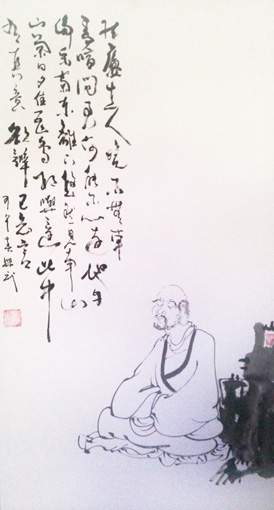 結廬在人境而無車
馬喧問君何能尔心遠地自
偏采菊東籬下悠然見南山
山氣日夕佳飛鳥相與還此中
有真意欲辨已忘言